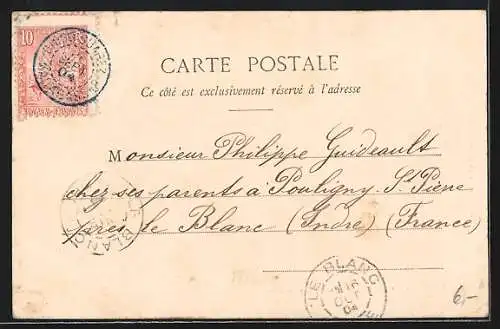 10
CARTE POSTALE
Ce côté est exclusivement réservé à l'adresse
Monsieur Philippe Guideault
chez ses parents à Pouligny St Pierre
près le Blanc (Indre) (France)
LE BLANC
LE BLANC
04
6,-